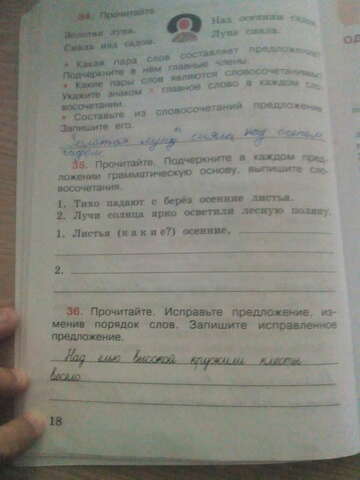 34. Прочитайте.
Золотая луна. Над осенним садом.
Сияла над садом. Луна сияла.
• Какая пара слов составляет предложение?
Подчеркните в нём главные члены.
• Какие пары слов являются словосочетаниями?
Укажите знаком × главное слово в каждом сло-
восочетании.
• Составьте из словосочетаний предложение.
Запишите его.
Золотая луна сияла над осенним
садом
35. Прочитайте. Подчеркните в каждом пред-
ложении грамматическую основу, выпишите сло-
восочетания.
1. Тихо падают с берёз осенние листья.
2. Лучи солнца ярко осветили лесную поляну.
1. Листья (какие?) осенние,
2.
36. Прочитайте. Исправьте предложение, из-
менив порядок слов. Запишите исправленное
предложение.
Над елью высокой кружили клесты
весело
18
ОД